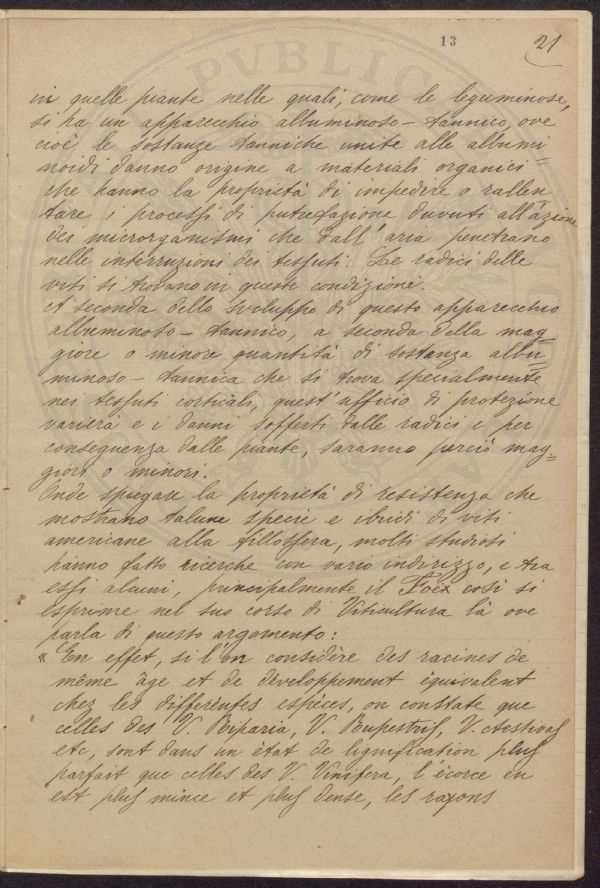 13
21
in quelle piante nelle quali, come le leguminose,
si ha un apparecchio albuminoso-tannico, ove
cioè le sostanze tanniche unite alle albumi
noidi danno origine a materiali organici=
che hanno la proprietà di impedire o rallen
tare i processi di putrefazione dovuti all'azione
dei microrganismi che dall'aria penetrano
nelle interruzioni dei tessuti. Le radici delle
viti si trovano in queste condizione.
A seconda dello sviluppo di questo apparecchio
albuminoso-tannico, a seconda della mag=
giore o minore quantità di sostanza albu=
minoso-tannica che si trova specialmente
nei tessuti corticali, quest'ufficio di protezione
varierà e i danni sofferti dalle radici e per
conseguenza dalle piante, saranno perciò mag=
giori o minori.
Onde spiegare la proprietà di resistenza che
mostrano talune specie e ibridi di viti
americane alla fillossera, molti studiosi
hanno fatto ricerche con vario indirizzo, e tra
essi alcuni, principalmente il Foëx così si
esprime nel suo corso di Viticultura là ove
parla di questo argomento:
« En effet, si l'on considère des racines de
même âge et de développement équivalent
chez les différentes espèces, on constate que
celles des V. Riparia, V. Rupestris, V. Aestivas
etc, sont dans un état de lignification plus
parfait que celles des V. Vinifera, l'écorce en
est plus mince et plus dense, les rayons
PVBLIC